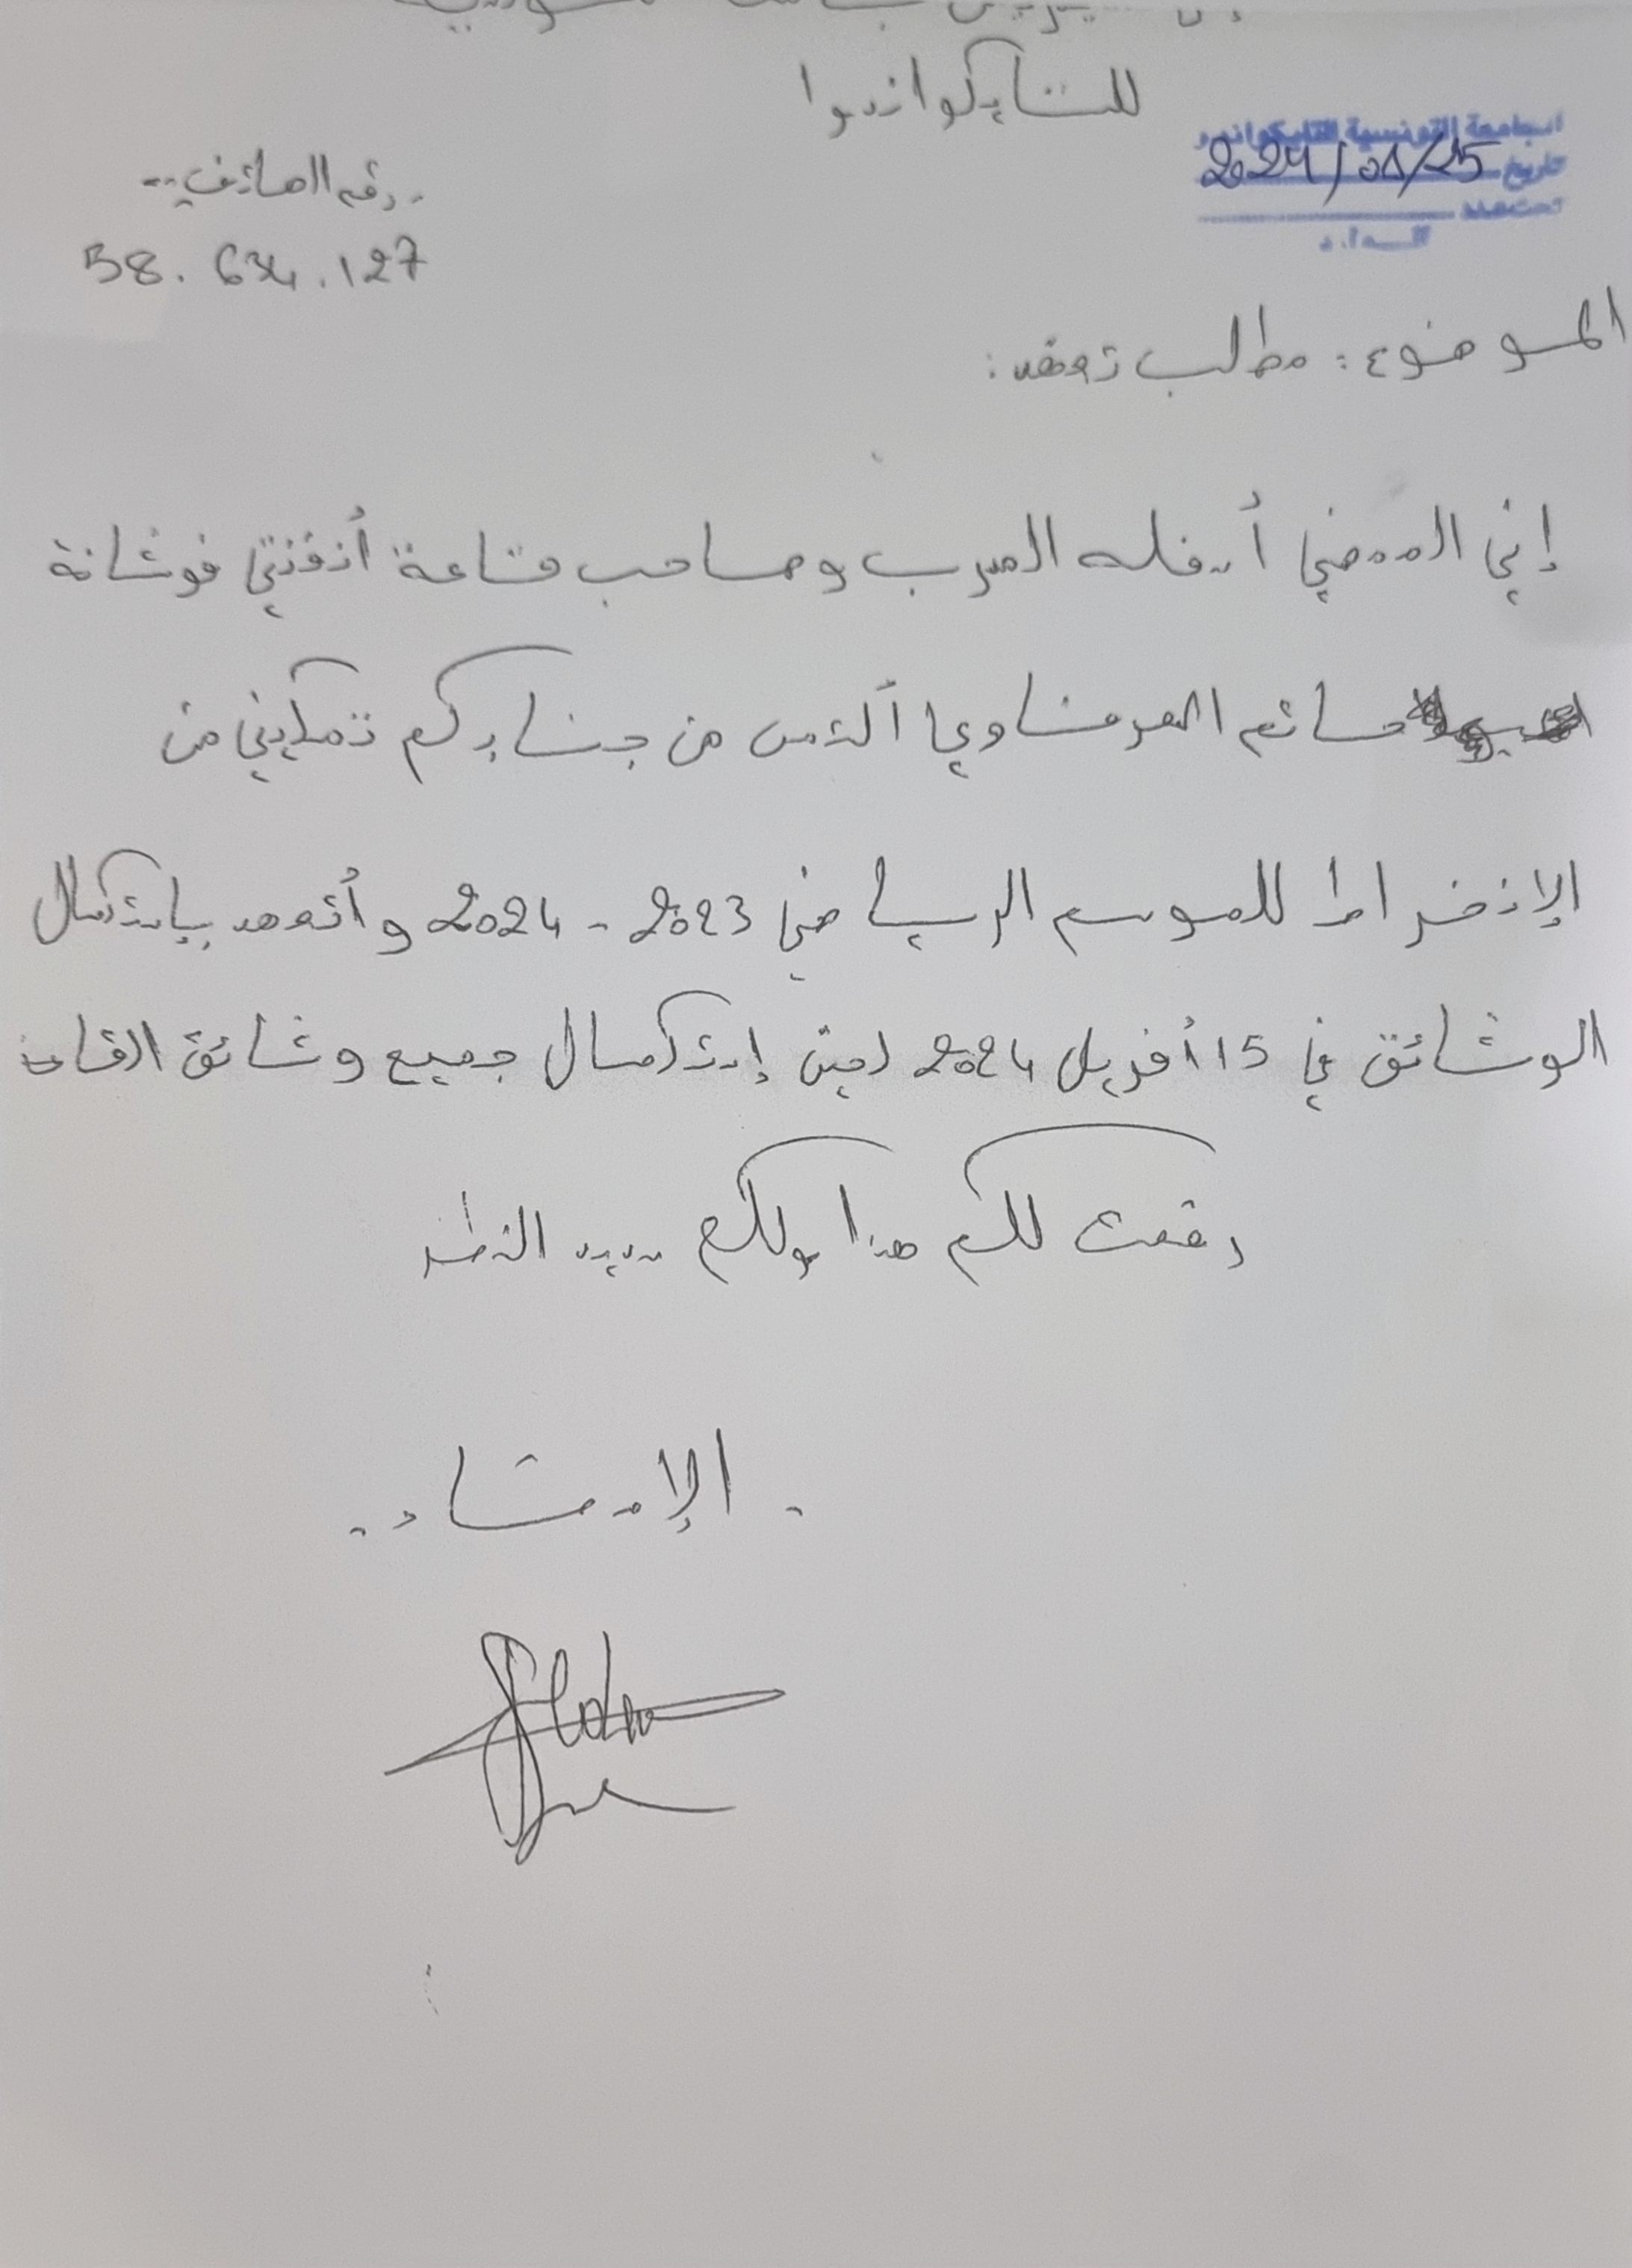 للتايكواندوا
الجامعة التونسية للتايكواندو
تاريخ 2024/01/25
تحت عدد
رقم الهاتف
58.634.127
الموضوع: مطلب تعهد:
إني الممضي أسفله المدرب وصاحب قاعة أنفنتي فوشانة
حاتم الفرشاوي ألتمس من جنابكم تمكيني من
الإنخراط للموسم الرياضي 2023 - 2024 وأتعهد بإستكمال
الوثائق في 15 أفريل 2024 لحين إستكمال جميع وثائق القاعة
دمتم لكم هذا ولكم سديد النظر
الإمضاء